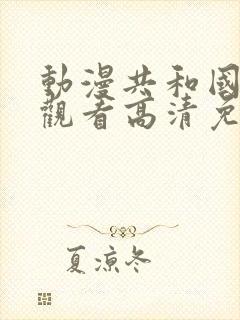 動漫共和國
觀看高清免
夏涼冬